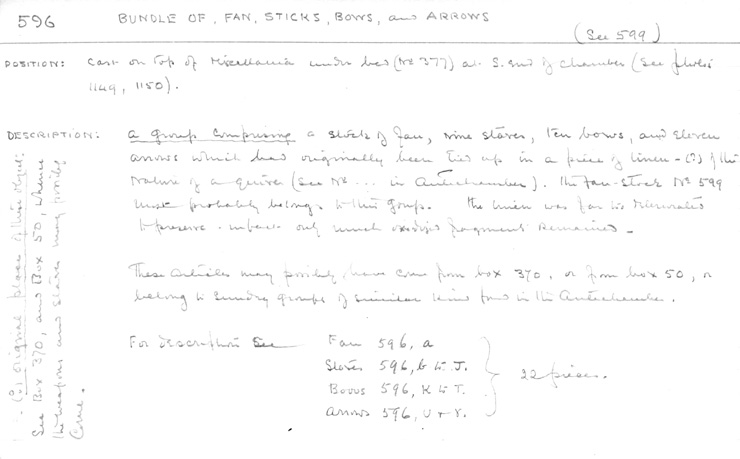 596 BUNDLE OF, FAN, STICKS, BOWS, and ARROWS
(See 599)
POSITION: Cast on top of Miscellania under bed (Nº 377) at S. end of chamber (See photos
1149, 1150).
DESCRIPTION: a group comprising a stock of fan, nine staves, ten bows, and eleven
arrows which had originally been tied up in a piece of linen - (?) of the
nature of a quiver (see Nº ... in Antechamber). The Fan-stock Nº 599
most probably belongs to this group. The linen was far too
to preserve - in fact only much fragments remained -
These articles may possibly have come from box 370, or from box 50, or
belong to sundry groups of similar kind found in the Antechamber.
For description See Fan 596, a
Staves 596, b to J.
Bows 596, K to T.
Arrows 596, U + V.
22 pieces.
(?) original place of these objects:
See Box 370, and Box 50, whence
the weapons and staves may possibly
come.